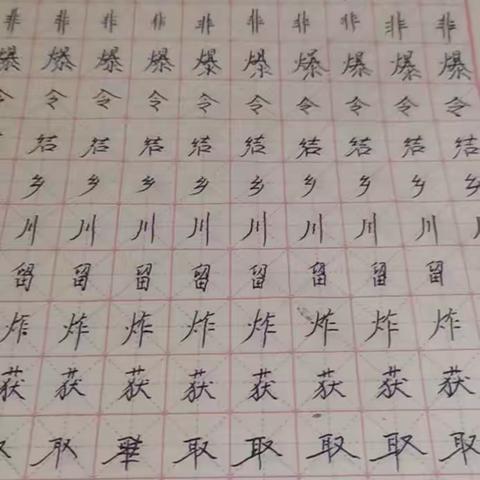 非非非非非非非非非非
爆爆爆爆爆爆爆爆爆爆
令令令令令令令令令令
结结结结结结结结结
乡乡乡乡乡乡乡乡乡
川川川川川川川川
留留留留留留留留
炸炸炸炸炸炸炸炸
获获获获获获获获
取取取取取取取